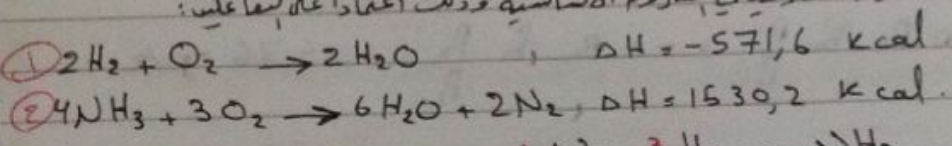 اعتمادا على
① 2H₂ + O₂ → 2H₂O , ΔH = -571,6 kcal
② 4NH₃ + 3O₂ → 6H₂O + 2N₂, ΔH = 1530,2 kcal.